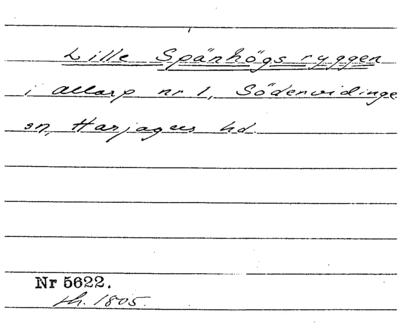 Lille Spänhögsryggen
i Allarp nr 1, Södervidinge
sn, Harjagers hd.
Nr 5622.
sk. 1805.